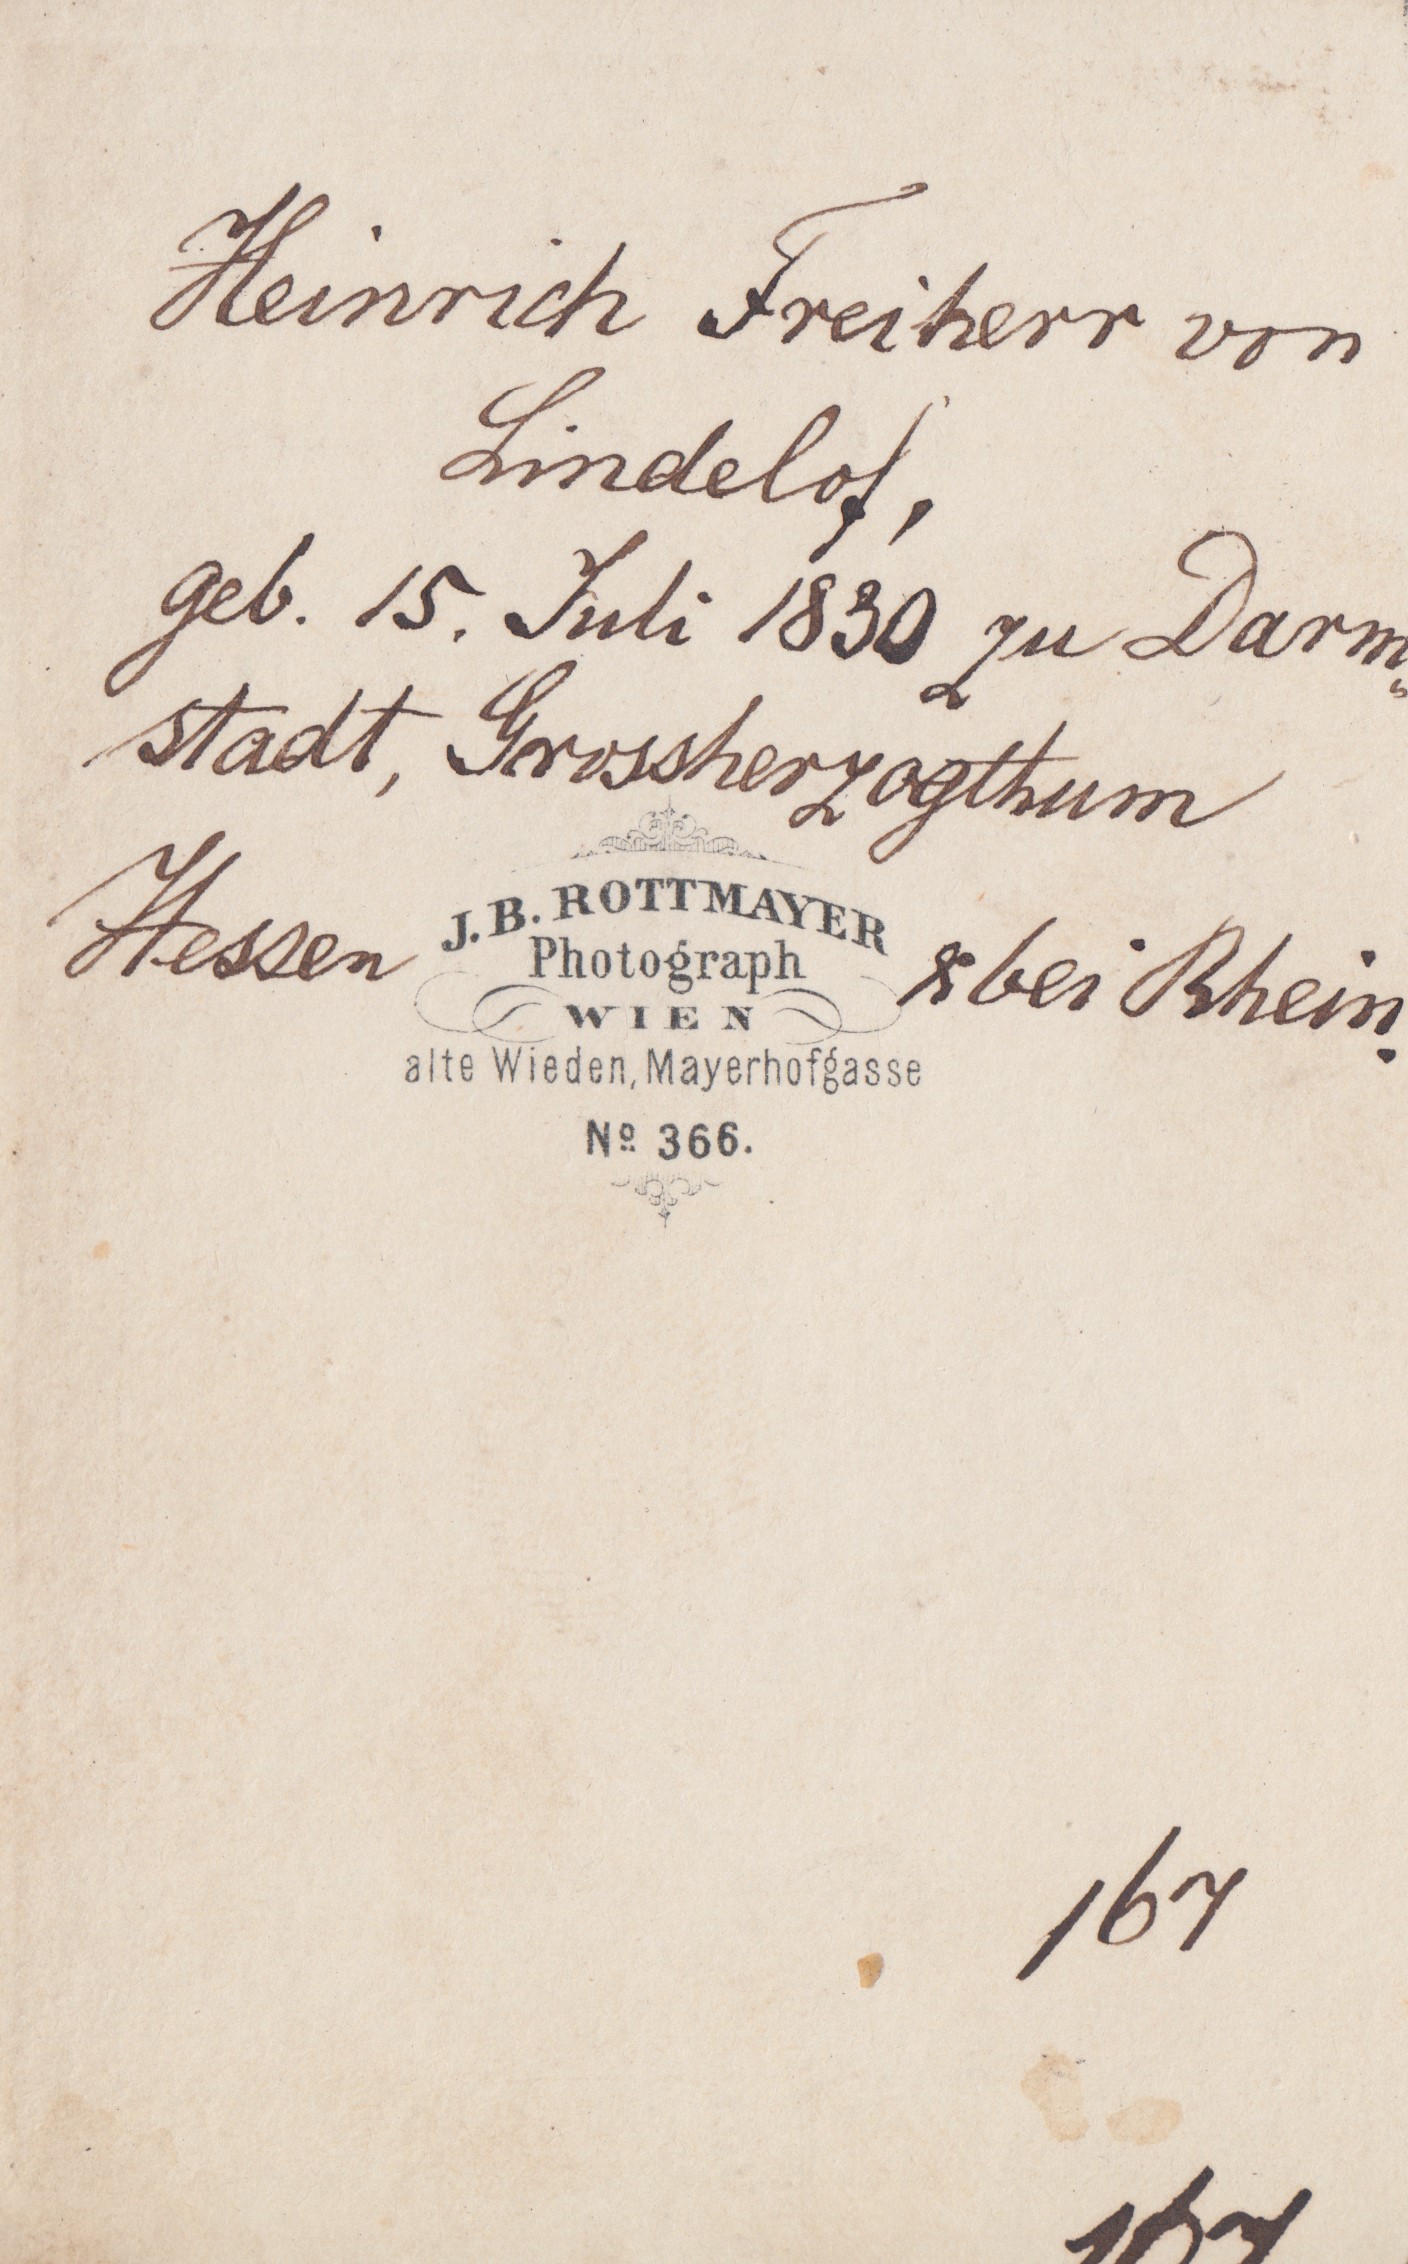 Heinrich Freiherr von
Lindelof,
geb. 15. Juli 1830 zu Darm„
stadt, Grossherzogthum
Hessen & bei Rhein.
J. B. ROTTMAYER
Photograph
WIEN
alte Wieden, Mayerhofgasse
Nº 366.
167
167